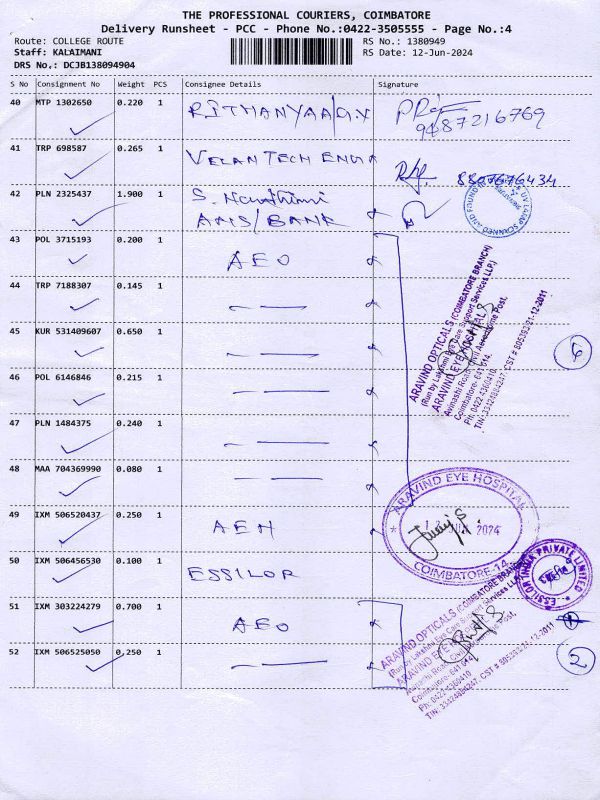 THE PROFESSIONAL COURIERS, COIMBATORE
Delivery Runsheet - PCC - Phone No.:0422-3505555 - Page No.:4
Route: COLLEGE ROUTE
RS No.: 1380949
Staff: KALAIMANI
RS Date: 12-Jun-2024
DRS No,: DCJB138094904
S No Consignment No Weight PCS Consignee Details Signature
40 MTP 1302650 0.220 1 RITHANYAA
9487216769
41 TRP 698587 0.265 1 VELAN TECH ENGA
8807676434
42 PLN 2325437 1.900 1 S.
AMS/BANK
SCANNED AND FOUND
43 POL 3715193 0.200 1 AEO
44 TRP 7188307 0.145 1 — —
45 KUR 531409607 0.650 1 — —
46 POL 6146846 0.215 1 — —
47 PLN 1484375 0.240 1 — —
48 MAA 704369990 0.080 1 — —
ARAVIND OPTICALS (COIMBATORE BRANCH)
(Run by Lakshmi Eye Care Support Services LLP.)
ARAVIND EYE HOSPITALS
Avinashi Road, Civil Aerodrome Post,
Coimbatore- 641 014.
Ph: 0422-4360410
6
49 IXM 506520437 0.250 1 AEH
ARAVIND EYE HOSPITAL
2024
COIMBATORE-14
50 IXM 506456530 0.100 1 ESSILOR
ESSILOR INDIA PRIVATE LIMITED
51 IXM 303224279 0.700 1 AEO
52 IXM 506525050 0,250 1 — —
ARAVIND OPTICALS (COIMBATORE BRANCH)
(Run by Lakshmi Eye Care Support Services LLP.)
ARAVIND EYE HOSPITALS
Avinashi Road, Civil
Coimbatore- 641 014.
Ph: 0422-4360410
2